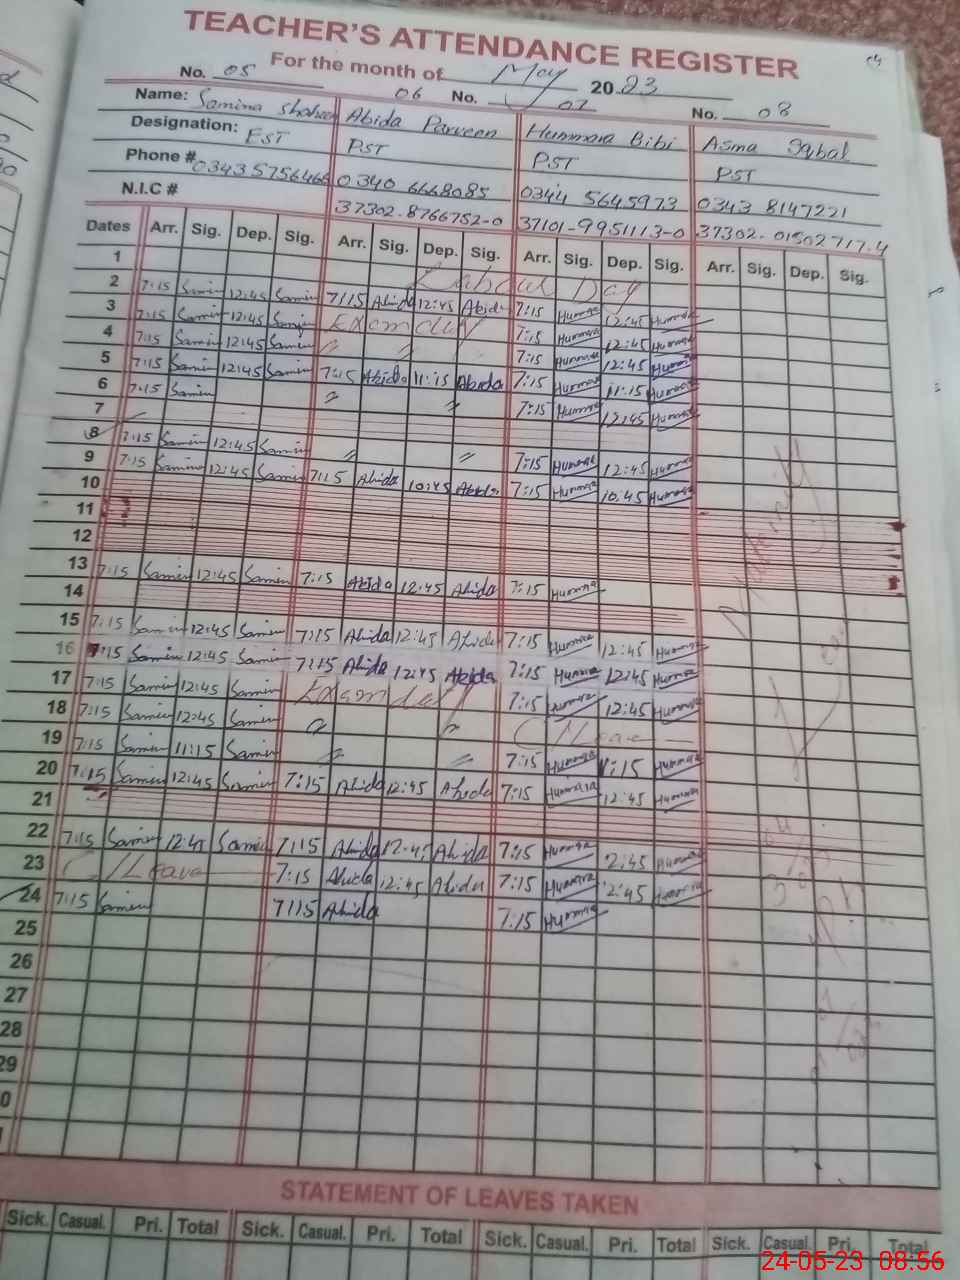 TEACHER'S ATTENDANCE REGISTER
For the month of May 2023
No. 05 06 No. 07 No. 08
Name: Samina Shaheen Abida Parveen Hummara Bibi Asma Iqbal
Designation: EST PST PST PST
Phone # 0343 5756466 0340 6668085 0344 5645973 0343 8147221
N.I.C # 37302-8766752-0 37101-9951113-0 37302-01502717-4
Dates Arr. Sig. Dep. Sig. Arr. Sig. Dep. Sig. Arr. Sig. Dep. Sig. Arr. Sig. Dep. Sig.
1 Labour Day
2 7:15 Samin 12:45 Samin 7:15 Abida 12:45 Abida 7:15 Humara 12:45 Humara
3 7:15 Samin 12:45 Samin Exam duty 7:15 Humara 12:45 Humara
4 7:15 Samin 12:45 Samin 〃 〃 7:15 Humara 12:45 Humara
5 7:15 Samin 12:45 Samin 7:15 Abida 11:15 Abida 7:15 Humara 11:15 Humara
6 7:15 Samin 〃 〃 7:15 Humara 12:45 Humara
7
8 7:15 Samin 12:45 Samin 〃 〃 7:15 Humara 12:45 Humara
9 7:15 Samin 12:45 Samin 7:15 Abida 10:45 Abida 7:15 Humara 10:45 Humara
10
11
12
13 7:15 Samin 12:45 Samin 7:15 Abida 12:45 Abida 7:15 Humara
14
15 7:15 Samin 12:45 Samin 7:15 Abida 12:45 Abida 7:15 Humara 12:45 Humara
16 7:15 Samin 12:45 Samin 7:15 Abida 12:45 Abida 7:15 Humara 12:45 Humara
17 7:15 Samin 12:45 Samin Exam duty 7:15 Humara 12:45 Humara
18 7:15 Samin 12:45 Samin 〃 〃 C/Leave
19 7:15 Samin 11:15 Samin 〃 〃 7:15 Humara 11:15 Humara
20 7:15 Samin 12:45 Samin 7:15 Abida 12:45 Abida 7:15 Humara 12:45 Humara
21
22 7:15 Samin 12:45 Samin 7:15 Abida 12:45 Abida 7:15 Humara 2:45 Humara
23 C/Leave 7:15 Abida 12:45 Abida 7:15 Humara 2:45 Humara
24 7:15 Samin 7:15 Abida 7:15 Humara
25
26
27
28
29
0
STATEMENT OF LEAVES TAKEN
Sick. Casual. Pri. Total Sick. Casual. Pri. Total Sick. Casual. Pri. Total Sick. Casual. Pri. Total
24-05-23 08:56